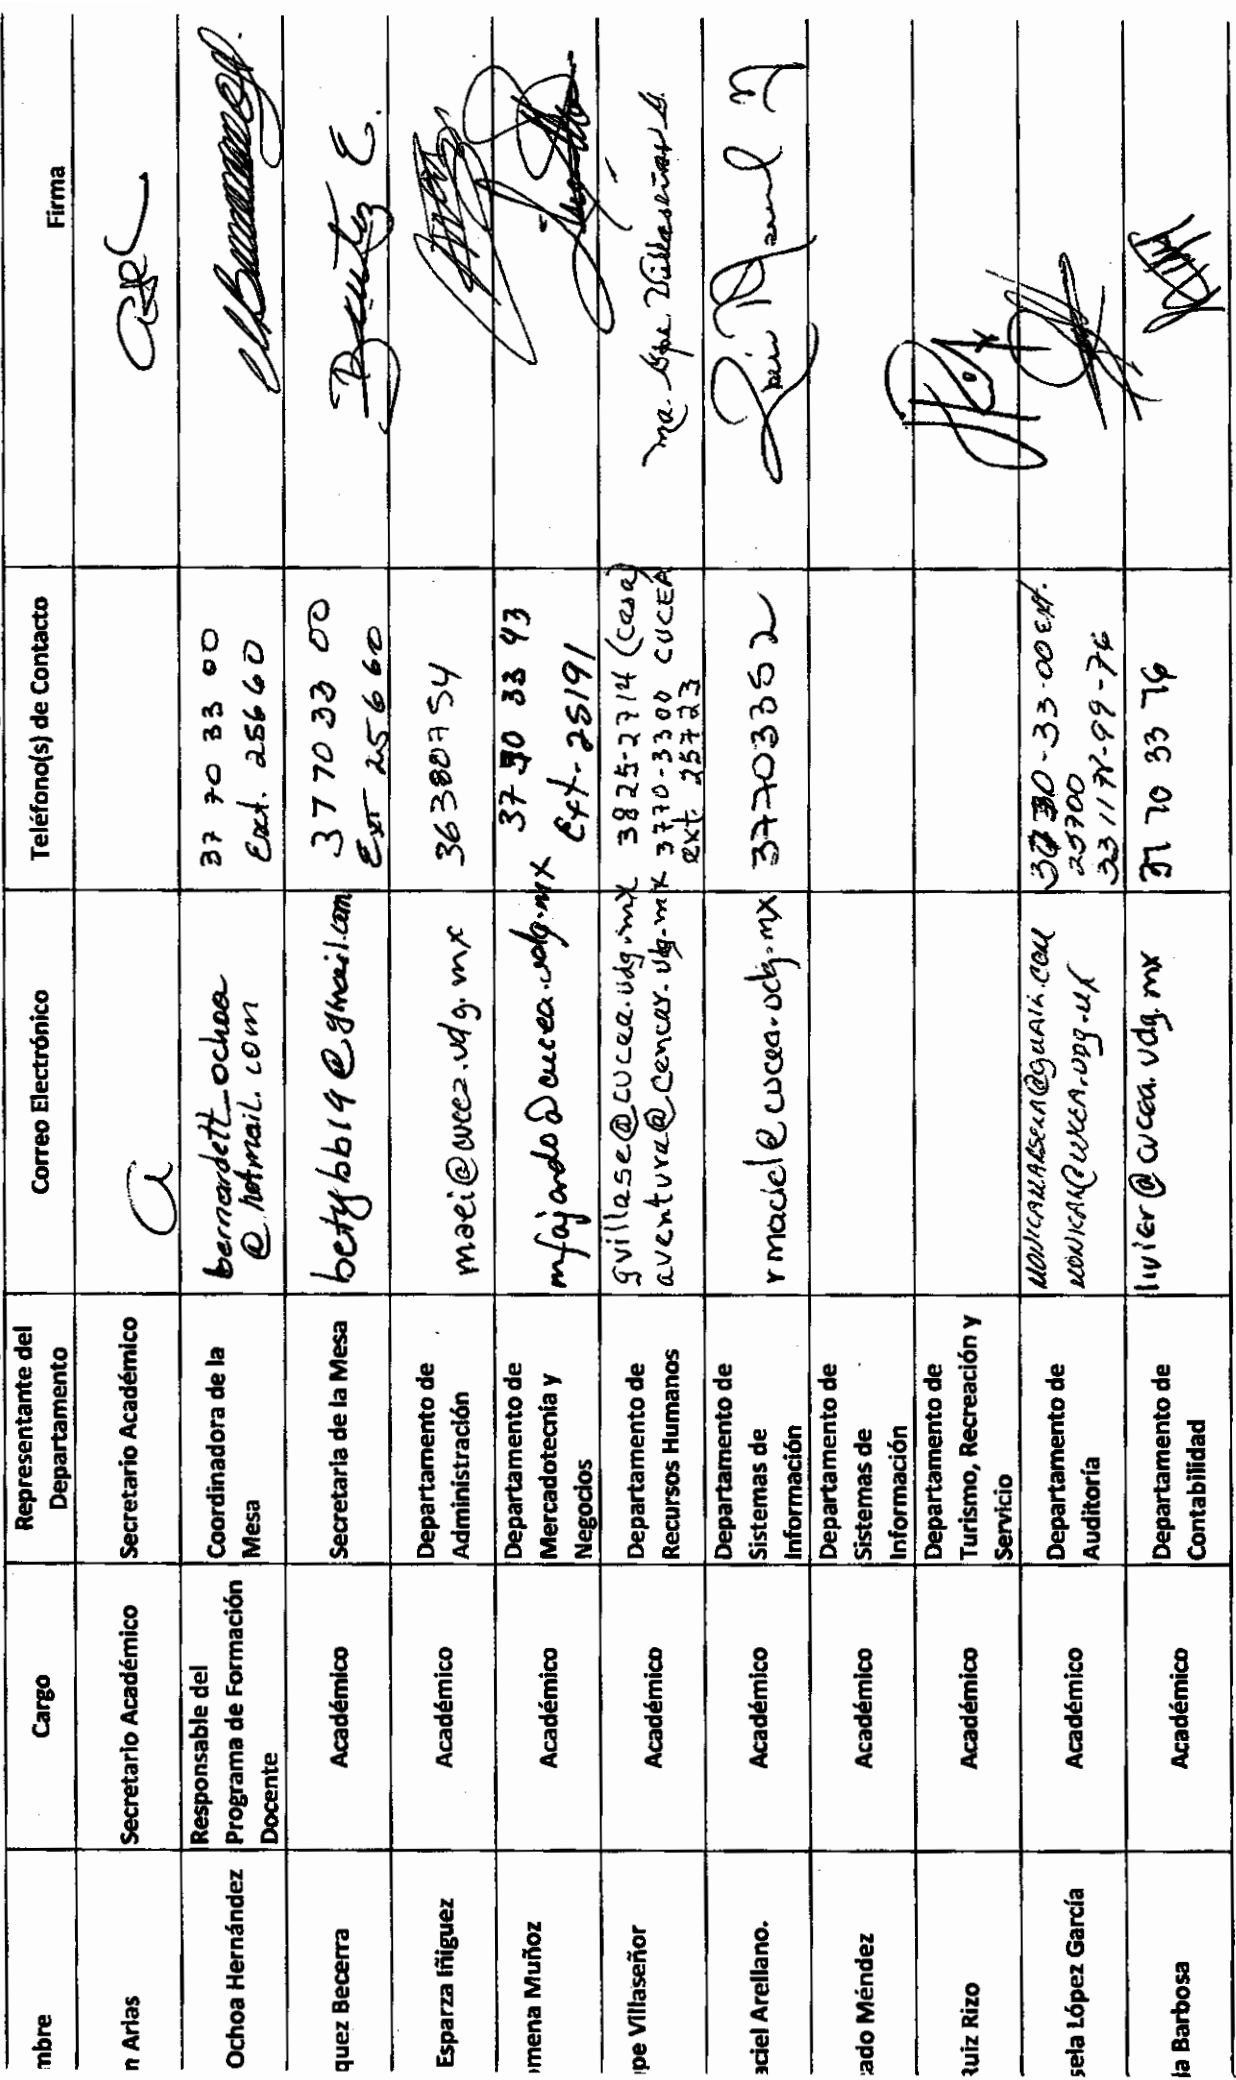 mbre Cargo Representante del Departamento Correo Electrónico Teléfono(s) de Contacto Firma
n Arias Secretario Académico Secretario Académico
Ochoa Hernández Responsable del Programa de Formación Docente Coordinadora de la Mesa bernardett_ochoa @hotmail.com 37 70 33 00 Ext. 25660
quez Becerra Académico Secretaria de la Mesa betybb19@gmail.com 37 70 33 00 Ext 25660
Esparza Iñiguez Académico Departamento de Administración maei@cucea.udg.mx 36380754
mena Muñoz Académico Departamento de Mercadotecnía y Negocios mfajardo@cucea.udg.mx 33 43 Ext. 25191
pe Villaseñor Académico Departamento de Recursos Humanos gvillase@cucea.udg.mx aventura@cencar.udg.mx 3825-2714 (casa) 3770-3300 CUCEA ext 25723 Ma. Gpe Villaseñor G.
aciel Arellano. Académico Departamento de Sistemas de Información rmaciel@cucea.udg.mx 37703352
ado Méndez Académico Departamento de Sistemas de Información
Ruiz Rizo Académico Departamento de Turismo, Recreación y Servicio
sela López García Académico Departamento de Auditoría 33-00 Ext. 25700
la Barbosa Académico Departamento de Contabilidad livier@cucea.udg.mx 37 70 33 76